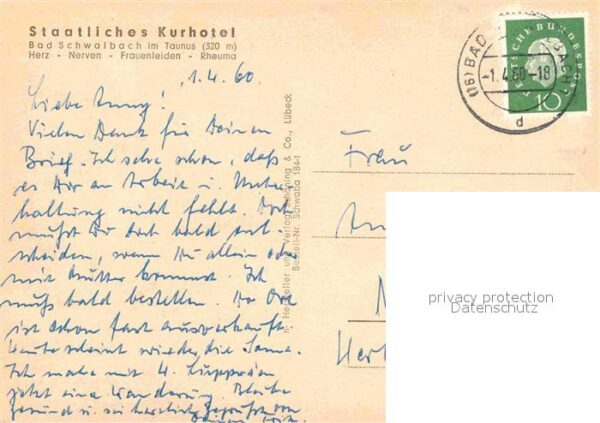 Staatliches Kurhotel
Bad Schwalbach im Taunus (320 m)
Herz - Nerven - Frauenleiden - Rheuma
1.4.60
Liebe Anny!
Vielen Dank für Deinen
Brief. Ich sehe schon, daß
es Dir an Arbeit u. Unter
haltung nicht fehlt. Doch
mußt Du Dich bald ent-
scheiden, wann Du allein oder
mit Mutter kommst. Ich
muß bald bestellen. Der Ort
ist schon fast ausverkauft
Heute scheint wieder die Sonne.
Ich mache mit 4
jetzt eine Wanderung. Bleibe
gesund u. sei herzlich gegrüßt von
Deinem
Hersteller und Verlag Schöning & Co., Lübeck
Bestell-Nr. Schwaba 184-1
(16) BAD SCHWALBACH
-1.4.60-18
d
DEUTSCHE BUNDESPOST
10
Frau
privacy protection
Datenschutz